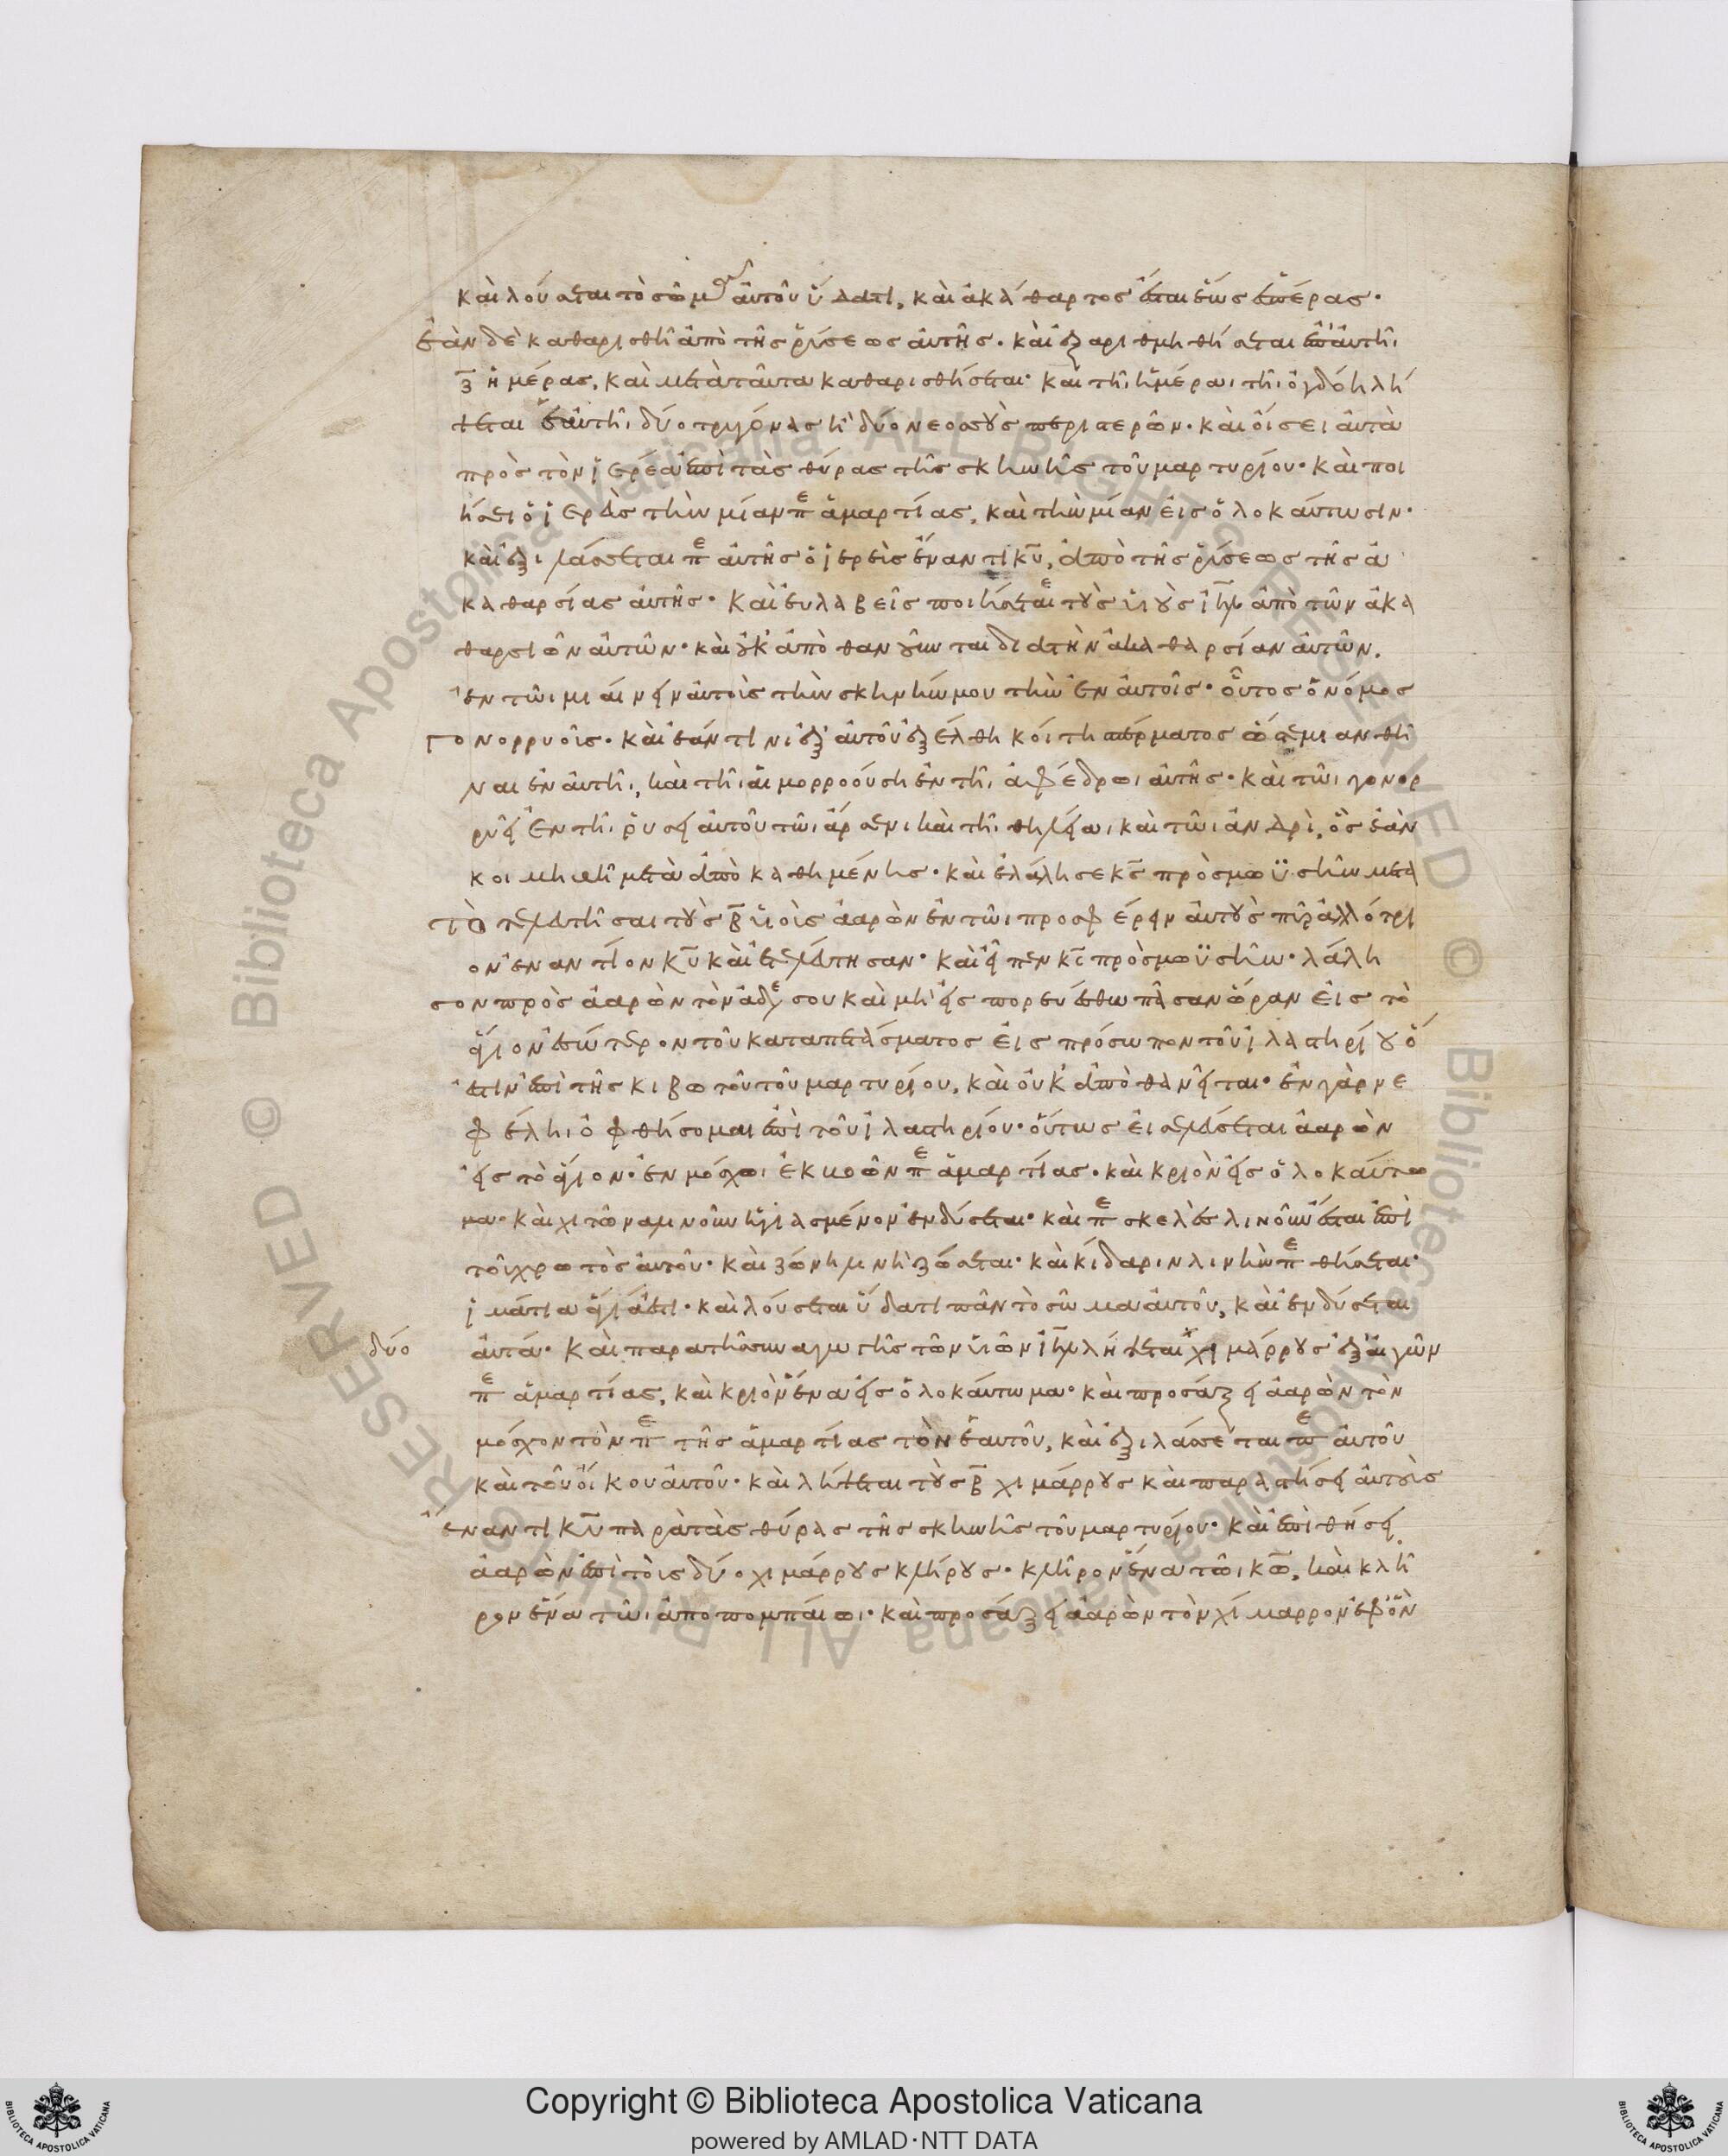 καὶ λούσεται τὸ σῶμα αὐτοῦ ὕδατι, καὶ ἀκάθαρτος ἔσται ἕως ἑσπέρας·
ἐὰν δὲ καθαρισθῆ ἀπὸ τῆς ῥύσεως αὐτῆς· καὶ ἐξαριθμηθήσεται ἐπ' αὐτῆι
ζ ἡμέρας, καὶ μετὰ ταῦτα καθαρισθήσεται· καὶ τῆι ἡμέραι τῆι ὀγδόη λή
ψεται ἑαυτῆι δύο τρυγόνας ἢ δύο νεοσσοὺς περιστερῶν· καὶ οἴσει αὐτὰ
πρὸς τὸν ἱερέα ἐπὶ τὰς θύρας τῆς σκηνῆς τοῦ μαρτυρίου· καὶ ποι
ήσει ὁ ἱερεὺς τὴν μίαν πε ἁμαρτίας, καὶ τὴν μίαν εἰς ὁλοκαύτωσιν·
καὶ ἐξιλάσεται πε αὐτῆς ὁ ἱερεὺς ἔναντι κυ, ἀπὸ τῆς ῥύσεως τῆς ἀ
καθαρσίας αὐτῆς· καὶ εὐλαβεῖς ποιήσεται τοὺς υἱοὺς ιηλ ἀπὸ τῶν ἀκα
θαρσιῶν αὐτῶν· καὶ οὐκ ἀποθανοῦνται διὰ τὴν ἀκαθαρσίαν αὐτῶν.
ἐν τῶι μιαίνειν αὐτοὺς τὴν σκηνήν μου τὴν ἐν αὐτοῖς· οὗτος ὁ νόμος
γονορρυοῖς· καὶ ἐάν τινι ἐξ αὐτοῦ ἐξέλθη κοίτη σπέρματος ὥστε μιανθῆ
ναι ἐν αὐτῆι, καὶ τῆι αἱμορροούση ἐν τῆι ἀφέδρωι αὐτῆς· καὶ τῶι γονορ
ρυεῖ ἐν τῆι ῥύσει αὐτοῦ τῶι ἄρσενι καὶ τῆι θηλείαι καὶ τῶι ἀνδρὶ, ὃς ἐὰν
κοιμηθῆ μετὰ ἀποκαθημένης· καὶ ἐλάλησε κς πρὸς μωϋσῆν μετὰ
τὸ τελευτῆσαι τοὺς β υἱοὺς ἀαρὼν ἐν τῶι προσφέρειν αὐτοὺς πῦρ ἀλλότρι
ον ἐναντίον κυ καὶ ἐτελεύτησαν· καὶ εἶπεν κς πρὸς μωϋσῆν· λάλη
σον πρὸς ἀαρὼν τὸν ἀδε σου καὶ μὴ εἰσπορευέσθω πᾶσαν ὥραν εἰς τὸ
ἅγιον ἐσώτερον τοῦ καταπετάσματος εἰς πρόσωπον τοῦ ἱλαστηρίου ὅ
ἐστιν ἐπὶ τῆς κιβωτοῦ τοῦ μαρτυρίου, καὶ οὐκ ἀποθανεῖται· ἐν γὰρ νε
φέληι ὀφθήσομαι ἐπὶ τοῦ ἱλαστηρίου· οὕτως εἰσελεύσεται ἀαρὼν
εἰς τὸ ἅγιον· ἐν μόσχωι ἐκ βοῶν πε ἁμαρτίας· καὶ κριὸν εἰς ὁλοκαύτω
μα· καὶ χιτῶνα λινοῦν ἡγιασμένον ἐνδύσεται· καὶ πε σκελὲς λινοῦν ἔσται ἐπὶ
τοῦ χρωτὸς αὐτοῦ· καὶ ζώνη λινῆ ζώσεται· καὶ κίδαριν λινῆν πε θήσεται·
ἱμάτια ἅγιά ἐστι· καὶ λούσεται ὕδατι πᾶν τὸ σῶμα αὐτοῦ, καὶ ἐνδύσεται
δύο αὐτά· καὶ παρὰ τῆς συναγωγῆς τῶν υἱῶν ιηλ λήψεται χιμάρρους ἐξ αἰγῶν
πε ἁμαρτίας, καὶ κριὸν ἕνα εἰς ὁλοκαύτωμα· καὶ προσάξει ἀαρὼν τὸν
μόσχον τὸν πε τῆς ἁμαρτίας τὸν ἑαυτοῦ, καὶ ἐξιλάσεται πε αὐτοῦ
καὶ τοῦ οἴκου αὐτοῦ· καὶ λήψεται τοὺς β χιμάρρους καὶ παραστήσει αὐτοὺς
ἔναντι κυ παρὰ τὰς θύρας τῆς σκηνῆς τοῦ μαρτυρίου· καὶ ἐπιθήσει
ἀαρὼν ἐπὶ τοὺς δύο χιμάρρους κλήρους· κλῆρον ἕνα τῶι κω, καὶ κλῆ
ρον ἕνα τῶι ἀποπομπαίωι· καὶ προσάξει ἀαρὼν τὸν χίμαρρον ἐφ' ὃν